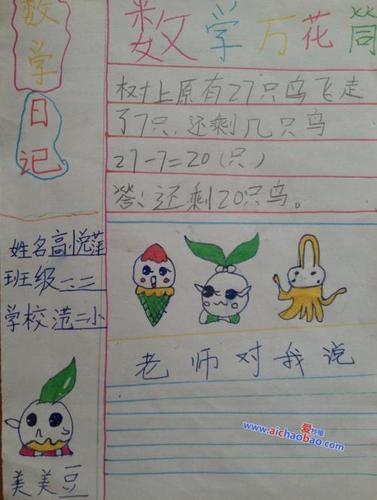 数学日记
数学万花筒
树上原有27只鸟飞走
了7只,还剩几只鸟
27-7=20(只)
答:还剩20只鸟。
姓名高悦莲
班级一.二
学校范二小
老师对我说
美美豆
爱抄报
www.aichaobao.com